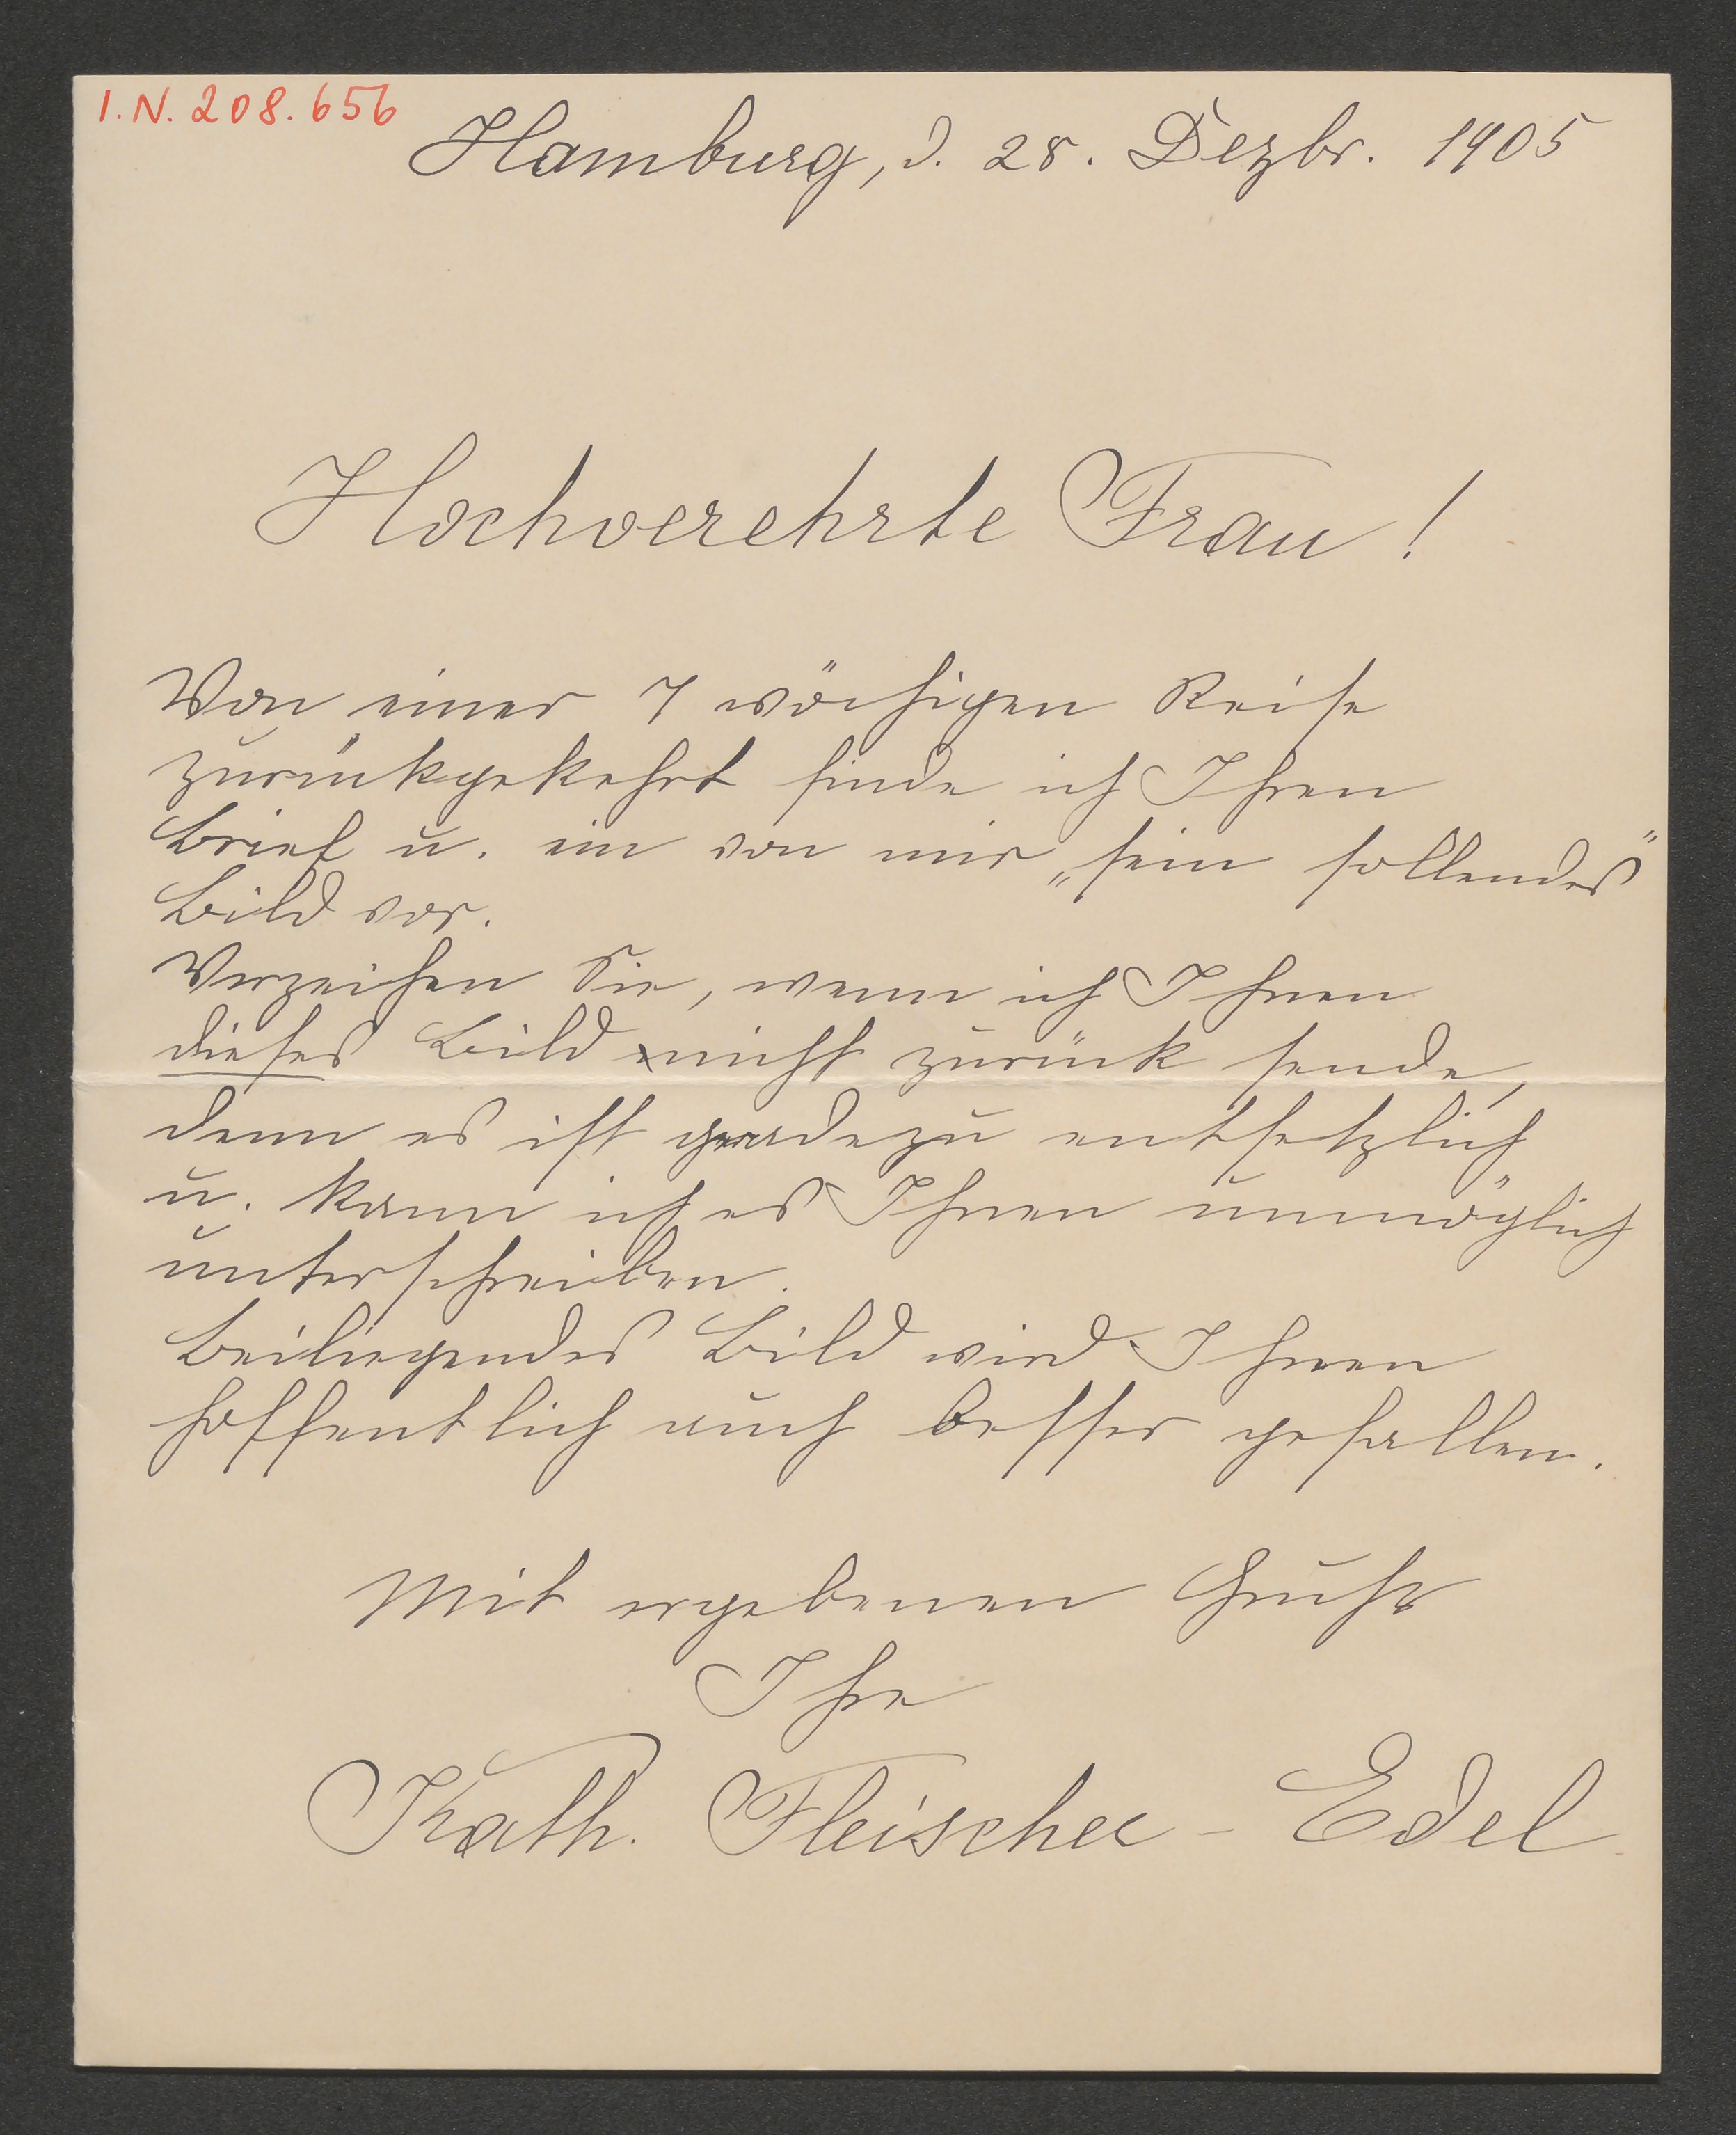 I.N. 208.656
Hamburg, d. 28. Dezbr. 1905
Hochverehrte Frau!
Von einer 7 wöchigen Reise
zurückgekehrt finde ich Ihren
Brief u. ein von mir „sein sollendes"
Bild vor.
Verzeihen Sie, wenn ich Ihnen
dieses Bild nicht zurück sende,
denn es ist geradezu entsetzlich
u. kann ich es Ihnen unmöglich
unterschreiben.
Beiliegendes Bild wird Ihnen
hoffentlich auch besser gefallen.
Mit ergebenen Gruße
Ihre
Kath. Fleischer-Edel